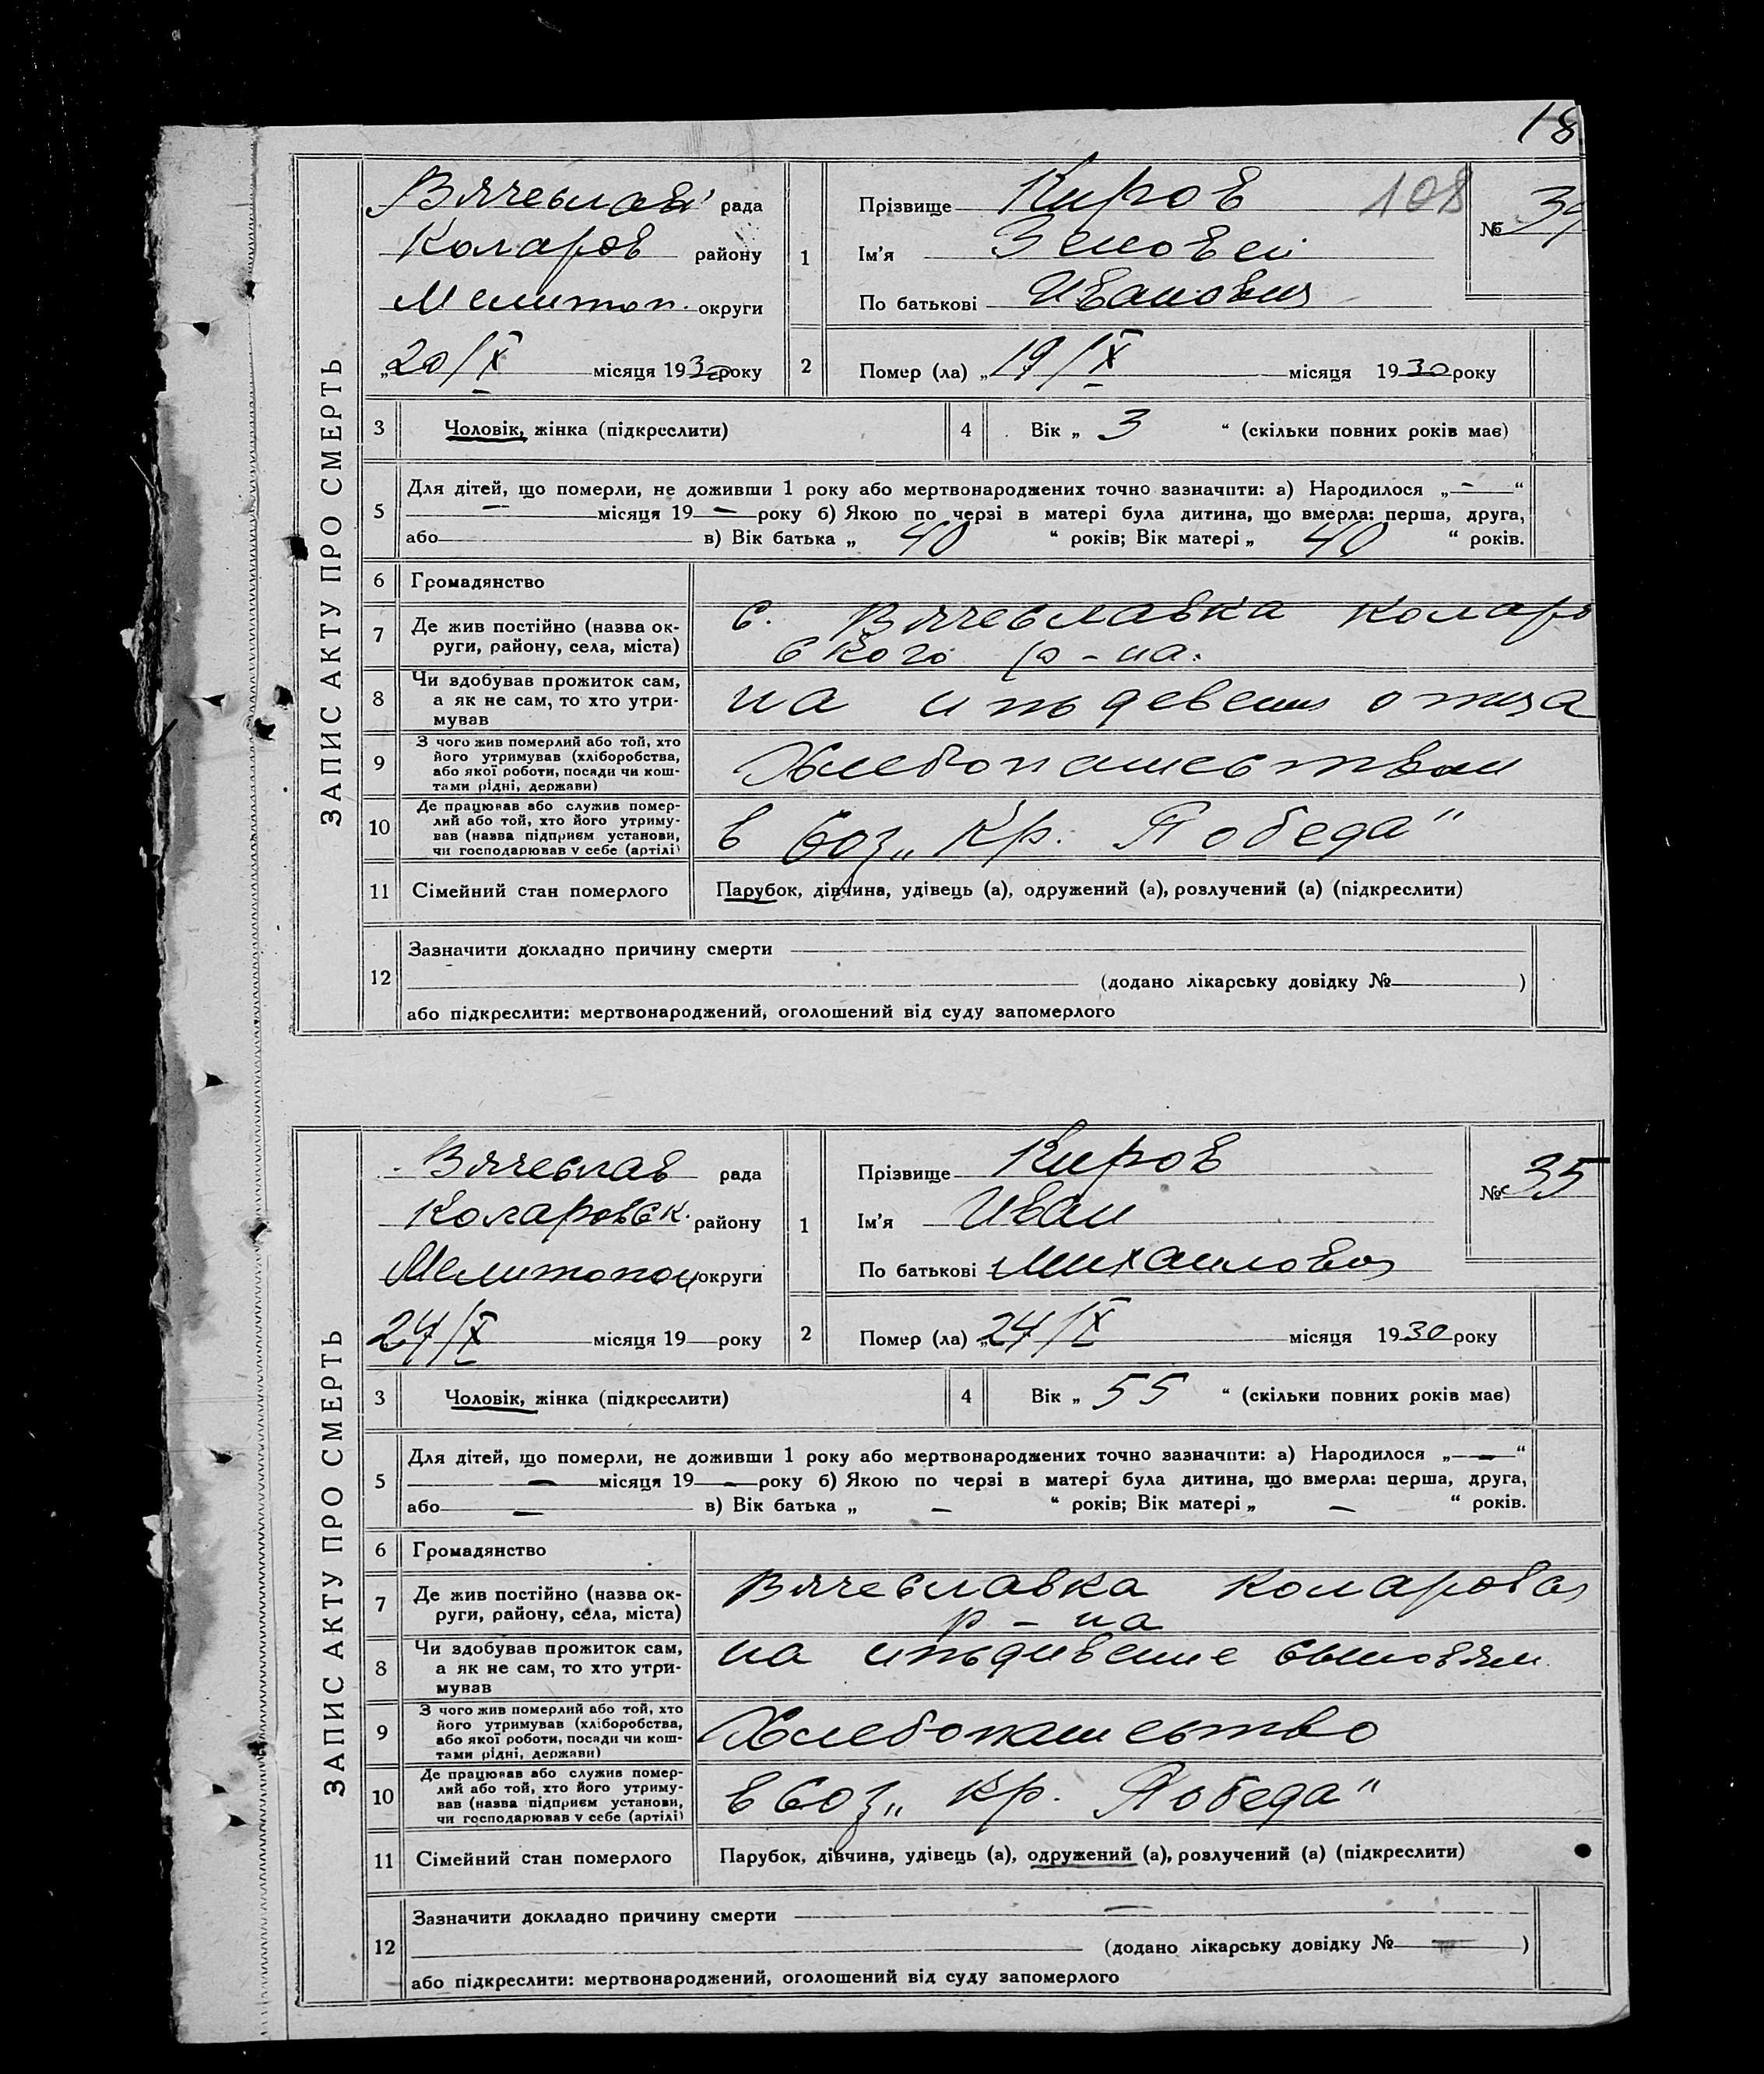 18
ЗАПИС АКТУ ПРО СМЕРТЬ
Вячеслав рада
Коларов району
Мелитоп. округи
„20/X місяця 1930 року
1
Прізвище Киров 108
Ім'я Зеновей
По батькові Иванович
№ 34
2 Помер (ла) „19/X місяця 1930 року
3 Чоловік, жінка (підкреслити)
4 Вік „ 3 “ (скільки повних років має)
5 Для дітей, що померли, не доживши 1 року або мертвонароджених точно зазначити: а) Народилося „ – “
– місяця 19 – року б) Якою по черзі в матері була дитина, що вмерла: перша, друга,
або в) Вік батька „ 40 “ років; Вік матері „ 40 “ років.
6 Громадянство
7 Де жив постійно (назва ок-
руги, району, села, міста)
с. Вячеславка Коларо
вского р-на.
8 Чи здобував прожиток сам,
а як не сам, то хто утри-
мував
на отца
9 З чого жив померлий або той, хто
його утримував (хліборобства,
або якої роботи, посади чи кош-
тами рідні, держави)
Хлебопашеством
10 Де працював або служив помер-
лий або той, хто його утриму-
вав (назва підприєм установи,
чи господарював у себе (артілі)
в Соз „Кр. Победа“
11 Сімейний стан померлого
Парубок, дівчина, удівець (а), одружений (а), розлучений (а) (підкреслити)
12 Зазначити докладно причину смерти
(додано лікарську довідку № )
або підкреслити: мертвонароджений, оголошений від суду запомерлого
ЗАПИС АКТУ ПРО СМЕРТЬ
Вячеслав рада
Коларовск. району
Мелитопол округи
24/X місяця 19 – року
1
Прізвище Киров
Ім'я Иван
По батькові Михаилович
№ 35
2 Помер (ла) „24/X місяця 1930 року
3 Чоловік, жінка (підкреслити)
4 Вік „ 55 “ (скільки повних років має)
5 Для дітей, що померли, не доживши 1 року або мертвонароджених точно зазначити: а) Народилося „ – “
– місяця 19 – року б) Якою по черзі в матері була дитина, що вмерла: перша, друга,
або – в) Вік батька „ – “ років; Вік матері „ – “ років.
6 Громадянство
7 Де жив постійно (назва ок-
руги, району, села, міста)
Вячеславка Коларовск
р-на
8 Чи здобував прожиток сам,
а як не сам, то хто утри-
мував
на сыновям
9 З чого жив померлий або той, хто
його утримував (хліборобства,
або якої роботи, посади чи кош-
тами рідні, держави)
Хлебопашество
10 Де працював або служив помер-
лий або той, хто його утриму-
вав (назва підприєм установи,
чи господарював у себе (артілі)
в Соз „Кр. Победа“
11 Сімейний стан померлого
Парубок, дівчина, удівець (а), одружений (а), розлучений (а) (підкреслити)
12 Зазначити докладно причину смерти –
(додано лікарську довідку № – )
або підкреслити: мертвонароджений, оголошений від суду запомерлого